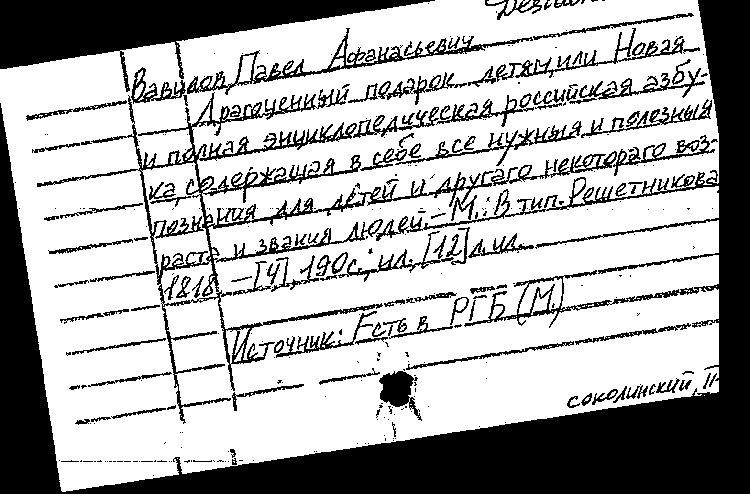 Вавилов, Павел Афанасьевич
Драгоценный подарок детям, или Новая
и полная энциклопедическая российская азбу-
ка, содержащая в себе все нужныя и полезныя
познания для детей и другаго некотораго воз-
раста и звания людей. – М.: В тип. Решетникова
1818 – [4], 190 с.; ил., [12] л. ил.
Источник: Есть в РГБ (М.)
соколинский, II-